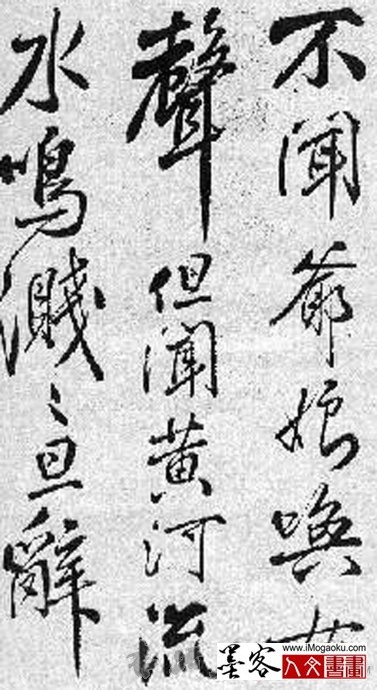 不聞爺娘喚女
聲但聞黄河流
水鳴濺〻旦辭
墨客
www.iMogaoku.com
人文書畫